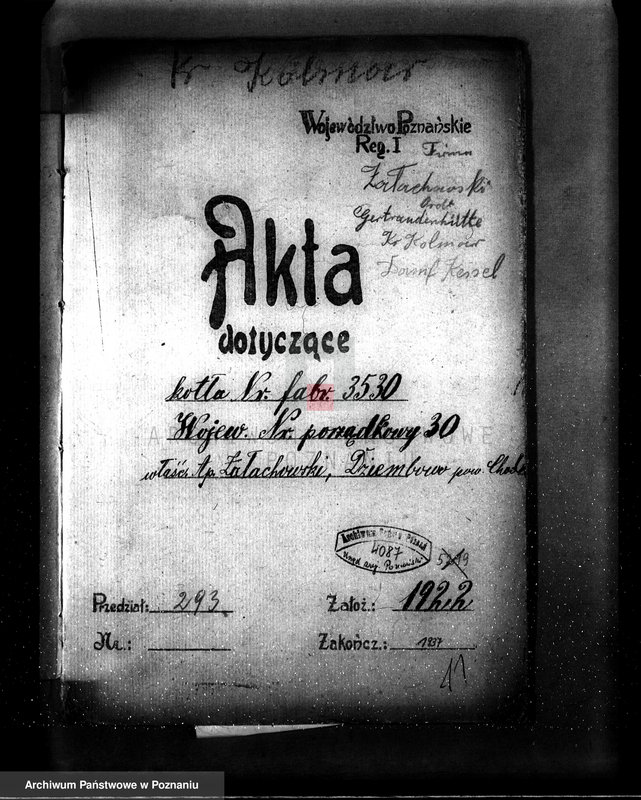 Kr Kolmar
Województwo Poznańskie
Reg. I
Firma
Załachowski
Gertraudenhütte
Kr Kolmar
Dampf Kessel
Akta
dotyczące
kotła Nr. fabr. 3530
Wojew. Nr. porządkowy 30
właśc. Ap. Załachowski, Dziembowo pow. Chodz
Archiwum Państw. Poznań
4087
Urząd Woj. Poznański
5219
Przedział: 293
Założ.: 1922
Nr.:
Zakończ.: 1937
11
Archiwum Państwowe w Poznaniu